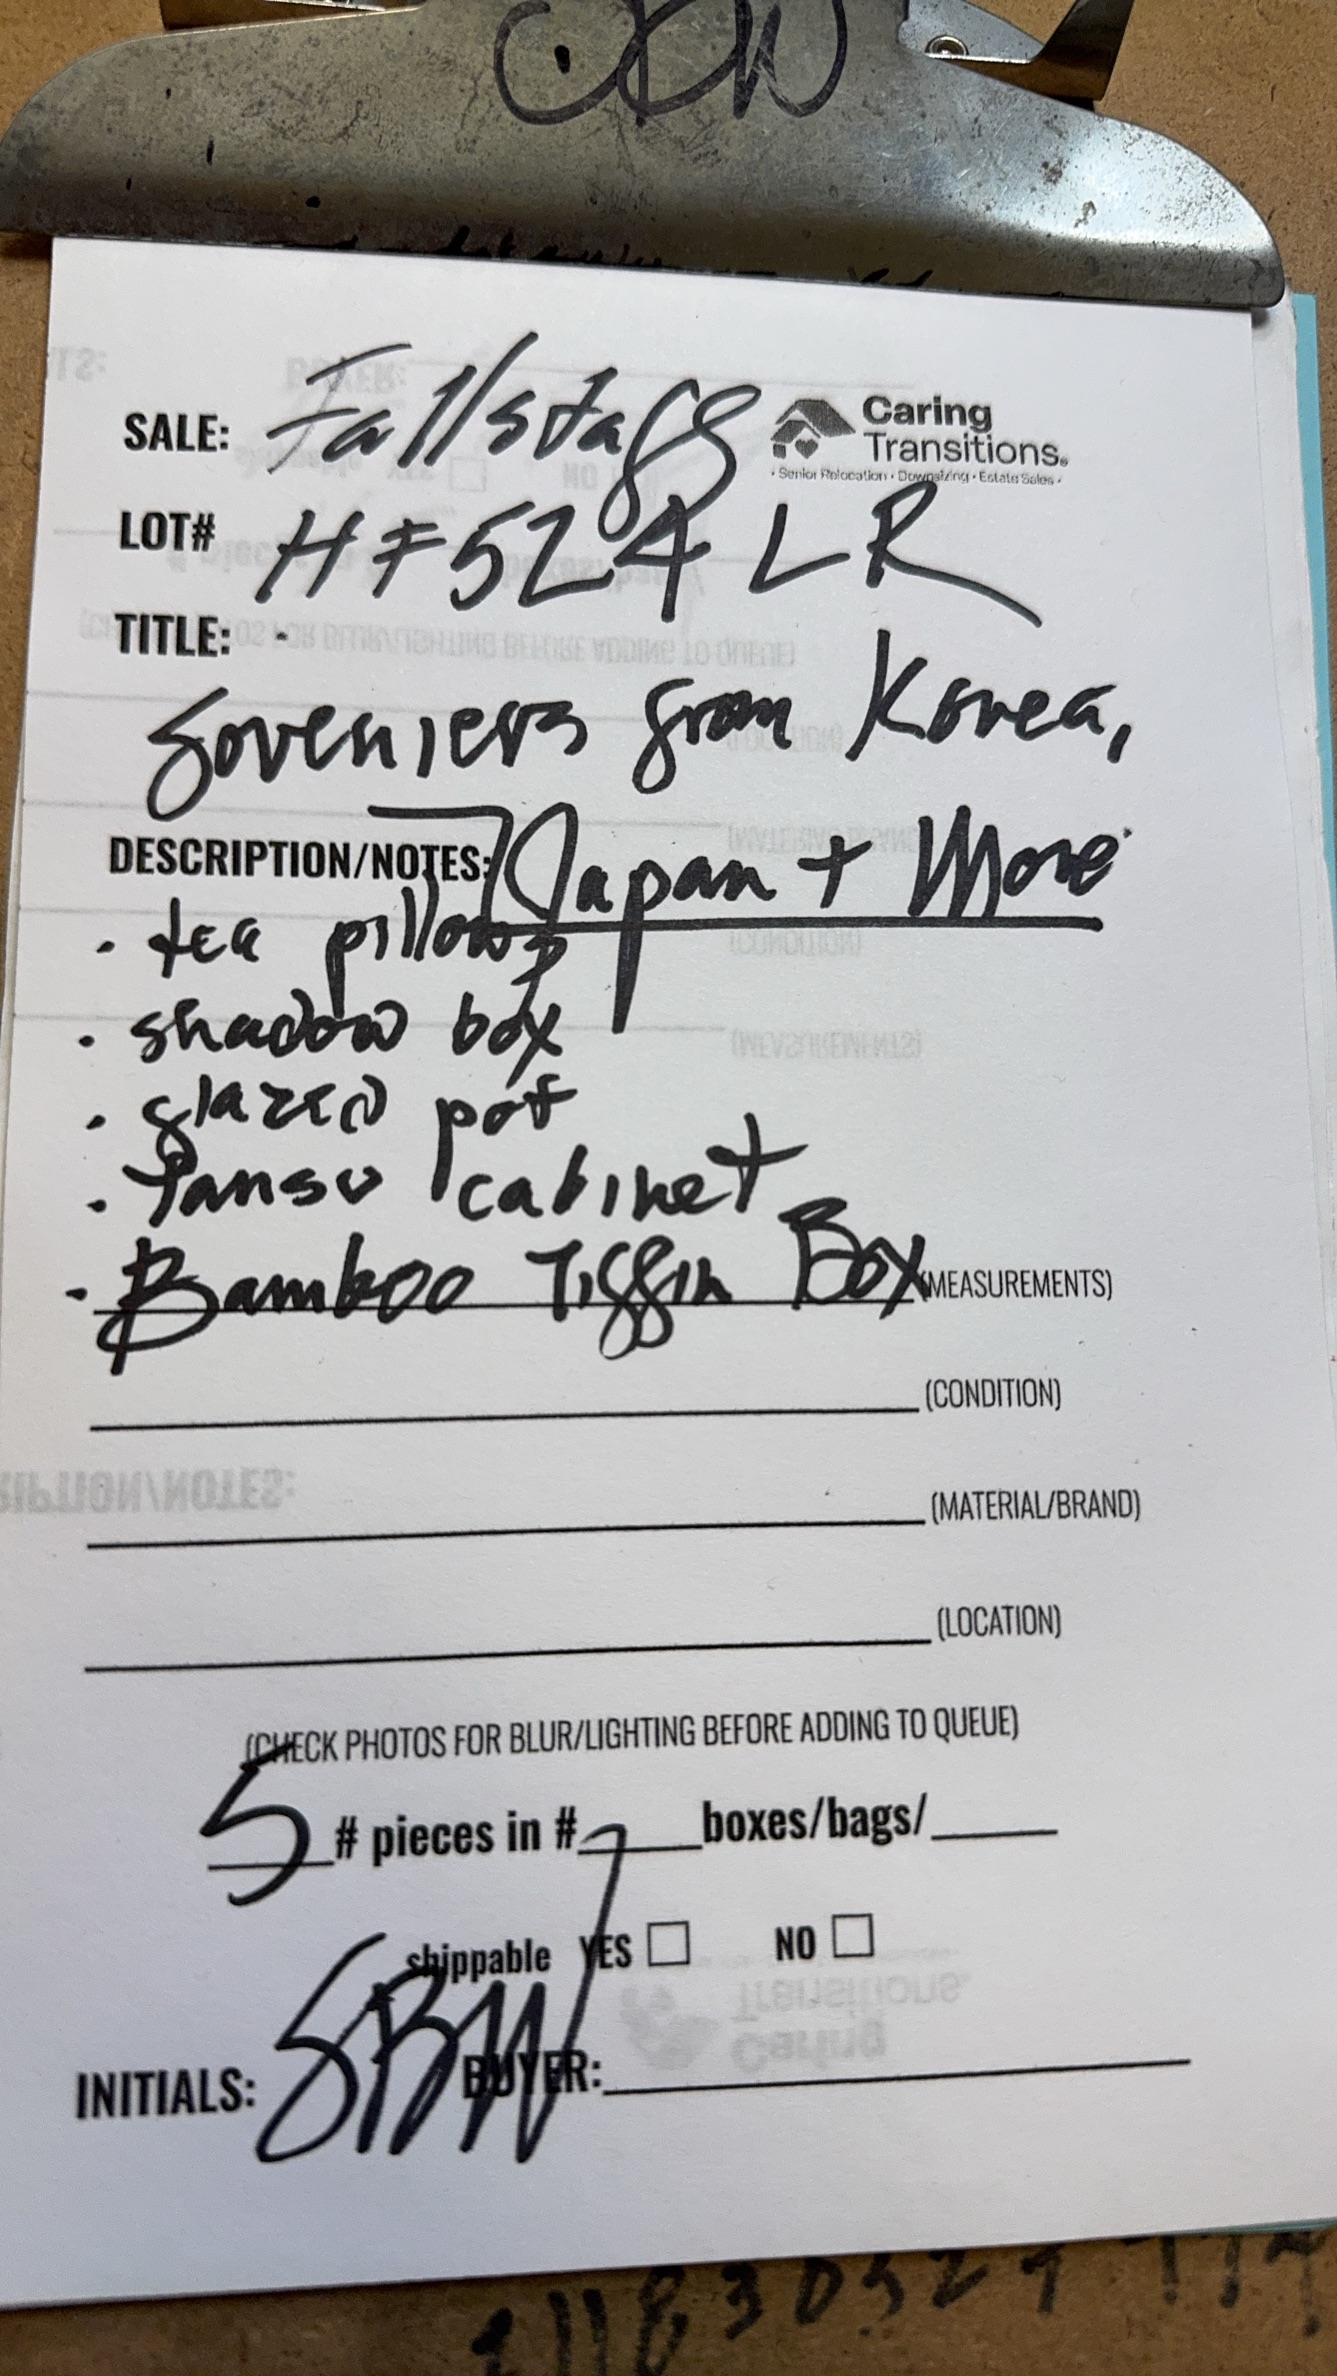 SALE: Fallstaff
Caring
Transitions®
• Senior Relocation • Downsizing • Estate Sales •
LOT# HF524 LR
TITLE: -
Soveniers from Korea,
Japan + More
DESCRIPTION/NOTES:
• tea pillows
• shadow box
• glazed pot
• Tansu cabinet
• Bamboo Tiffin Box (MEASUREMENTS)
(CONDITION)
(MATERIAL/BRAND)
(LOCATION)
(CHECK PHOTOS FOR BLUR/LIGHTING BEFORE ADDING TO QUEUE)
5 # pieces in # 1 boxes/bags/
shippable YES □ NO □
INITIALS: SBW BUYER: